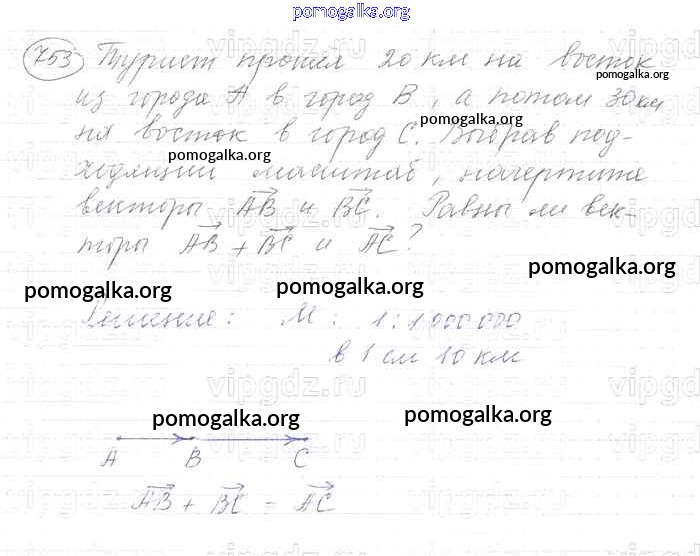 pomogalka.org
753 Турист прошёл 20 км на восток
pomogalka.org
из города A в город B, а потом 30 км
pomogalka.org
на восток в город C. Выбрав под-
pomogalka.org
ходящий масштаб, начертите
векторы AB и BC. Равны ли век-
торы AB + BC и AC?
pomogalka.org
pomogalka.org
pomogalka.org
Решение: М: 1:1 000 000
в 1 см 10 км
vipgdz.ru
pomogalka.org
pomogalka.org
A B C
AB + BC = AC